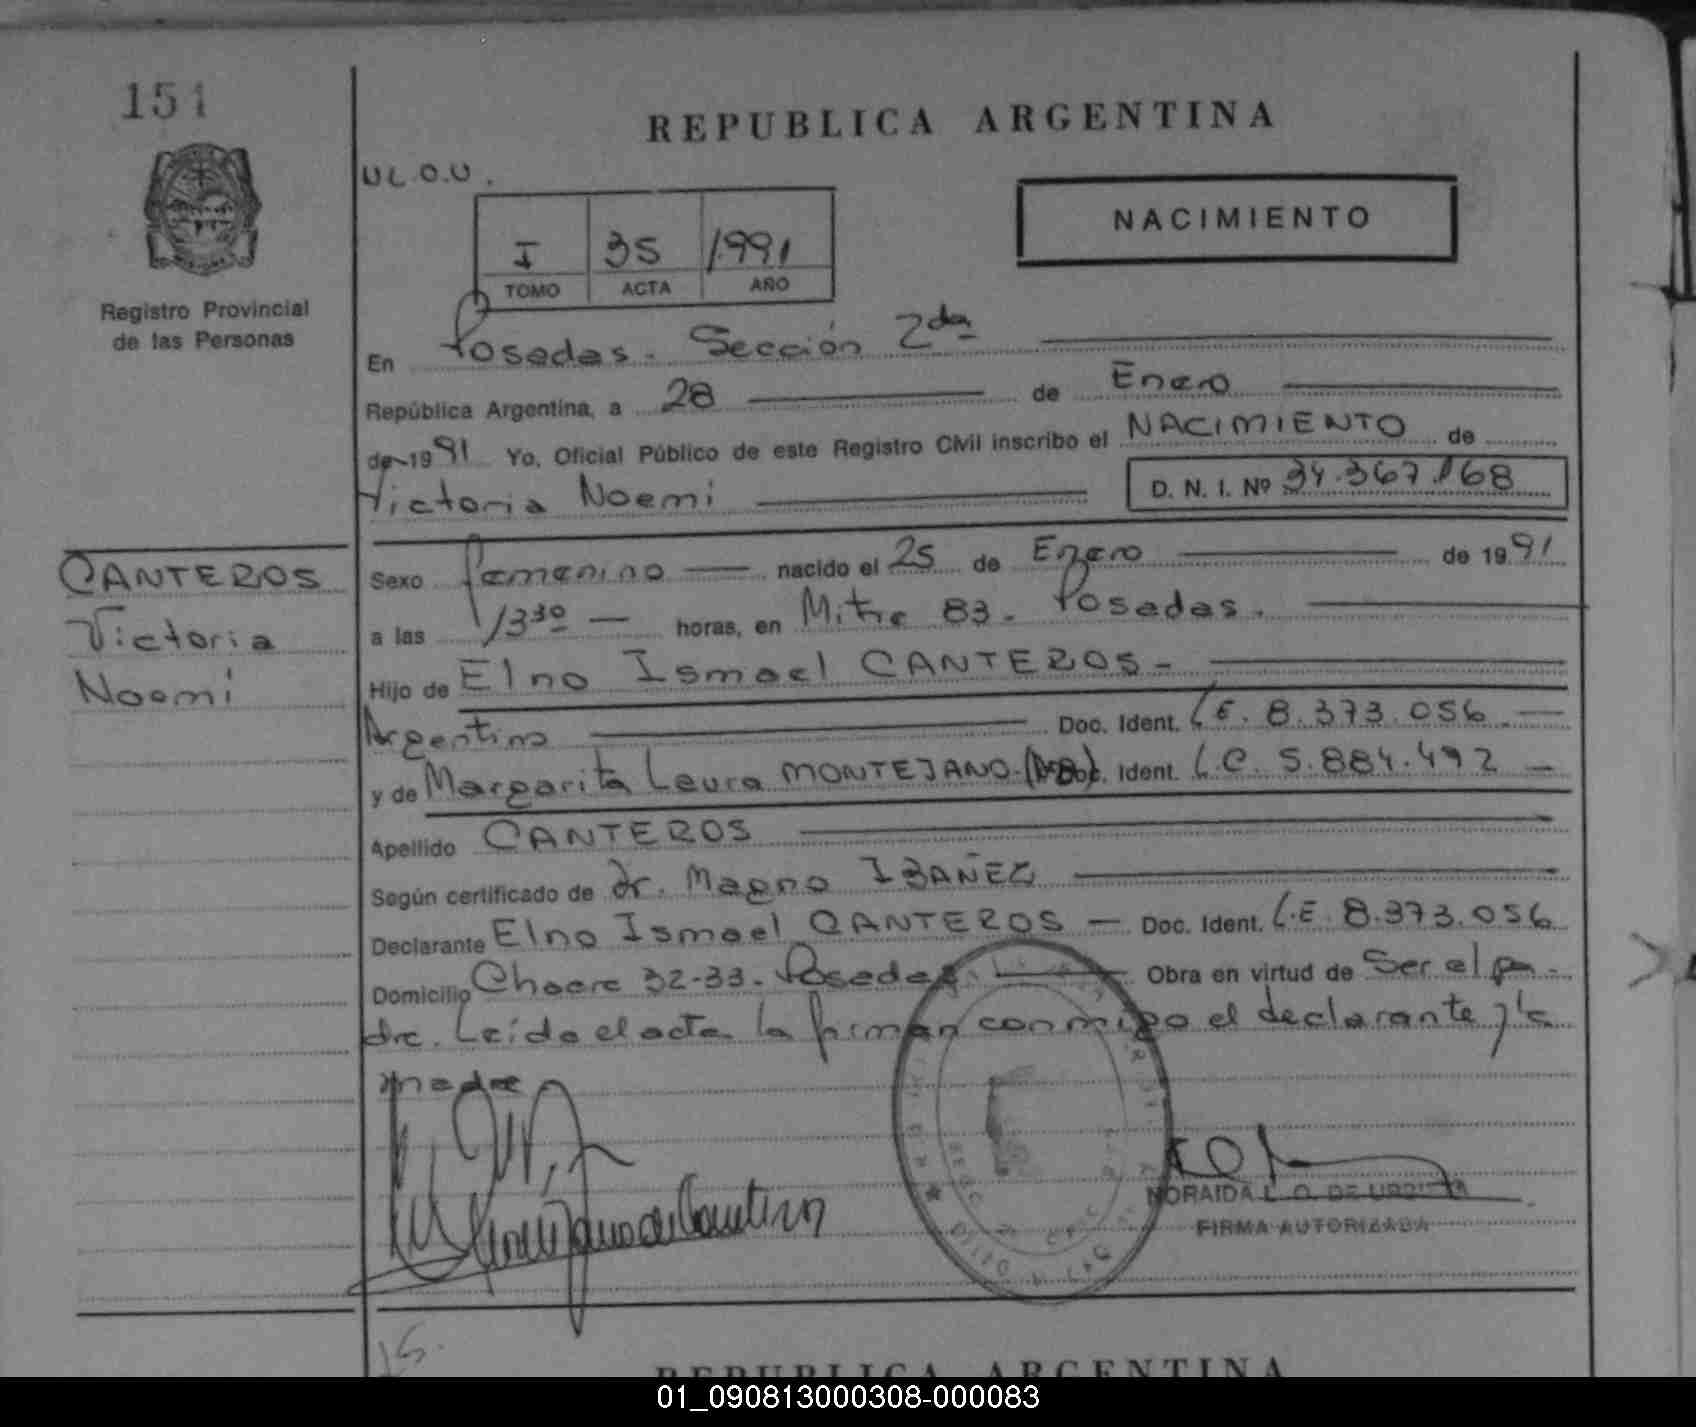 151
REPUBLICA ARGENTINA
U L O U .
NACIMIENTO
I 35 1991
TOMO ACTA AÑO
Registro Provincial
de las Personas
En Posadas - Sección 2da
República Argentina, a 28 de Enero
de 1991 Yo, Oficial Público de este Registro Civil inscribo el NACIMIENTO de
Victoria Noemi D. N. I. Nº 34.367.168
CANTEROS
Victoria
Noemí
Sexo femenino nacido el 25 de Enero de 1991
a las 13 30 horas, en Mitre 83 - Posadas.
Hijo de Elno Ismael CANTEROS -
Argentino Doc. Ident. L.E. 8.373.056
y de Margarita Laura MONTEJANO Doc. Ident. L.C. 5.884.492
Apellido CANTEROS
Según certificado de Dr. Magno IBAÑEZ
Declarante Elno Ismael CANTEROS - Doc. Ident. L.E. 8.373.056
Domicilio Chacra 32-33. Posadas Obra en virtud de Ser el pa-
dre. Leída el acta la firman conmigo el declarante y la
madre
NORAIDA L. O. DE
FIRMA AUTORIZADA
REPUBLICA ARGENTINA
01_090813000308-000083